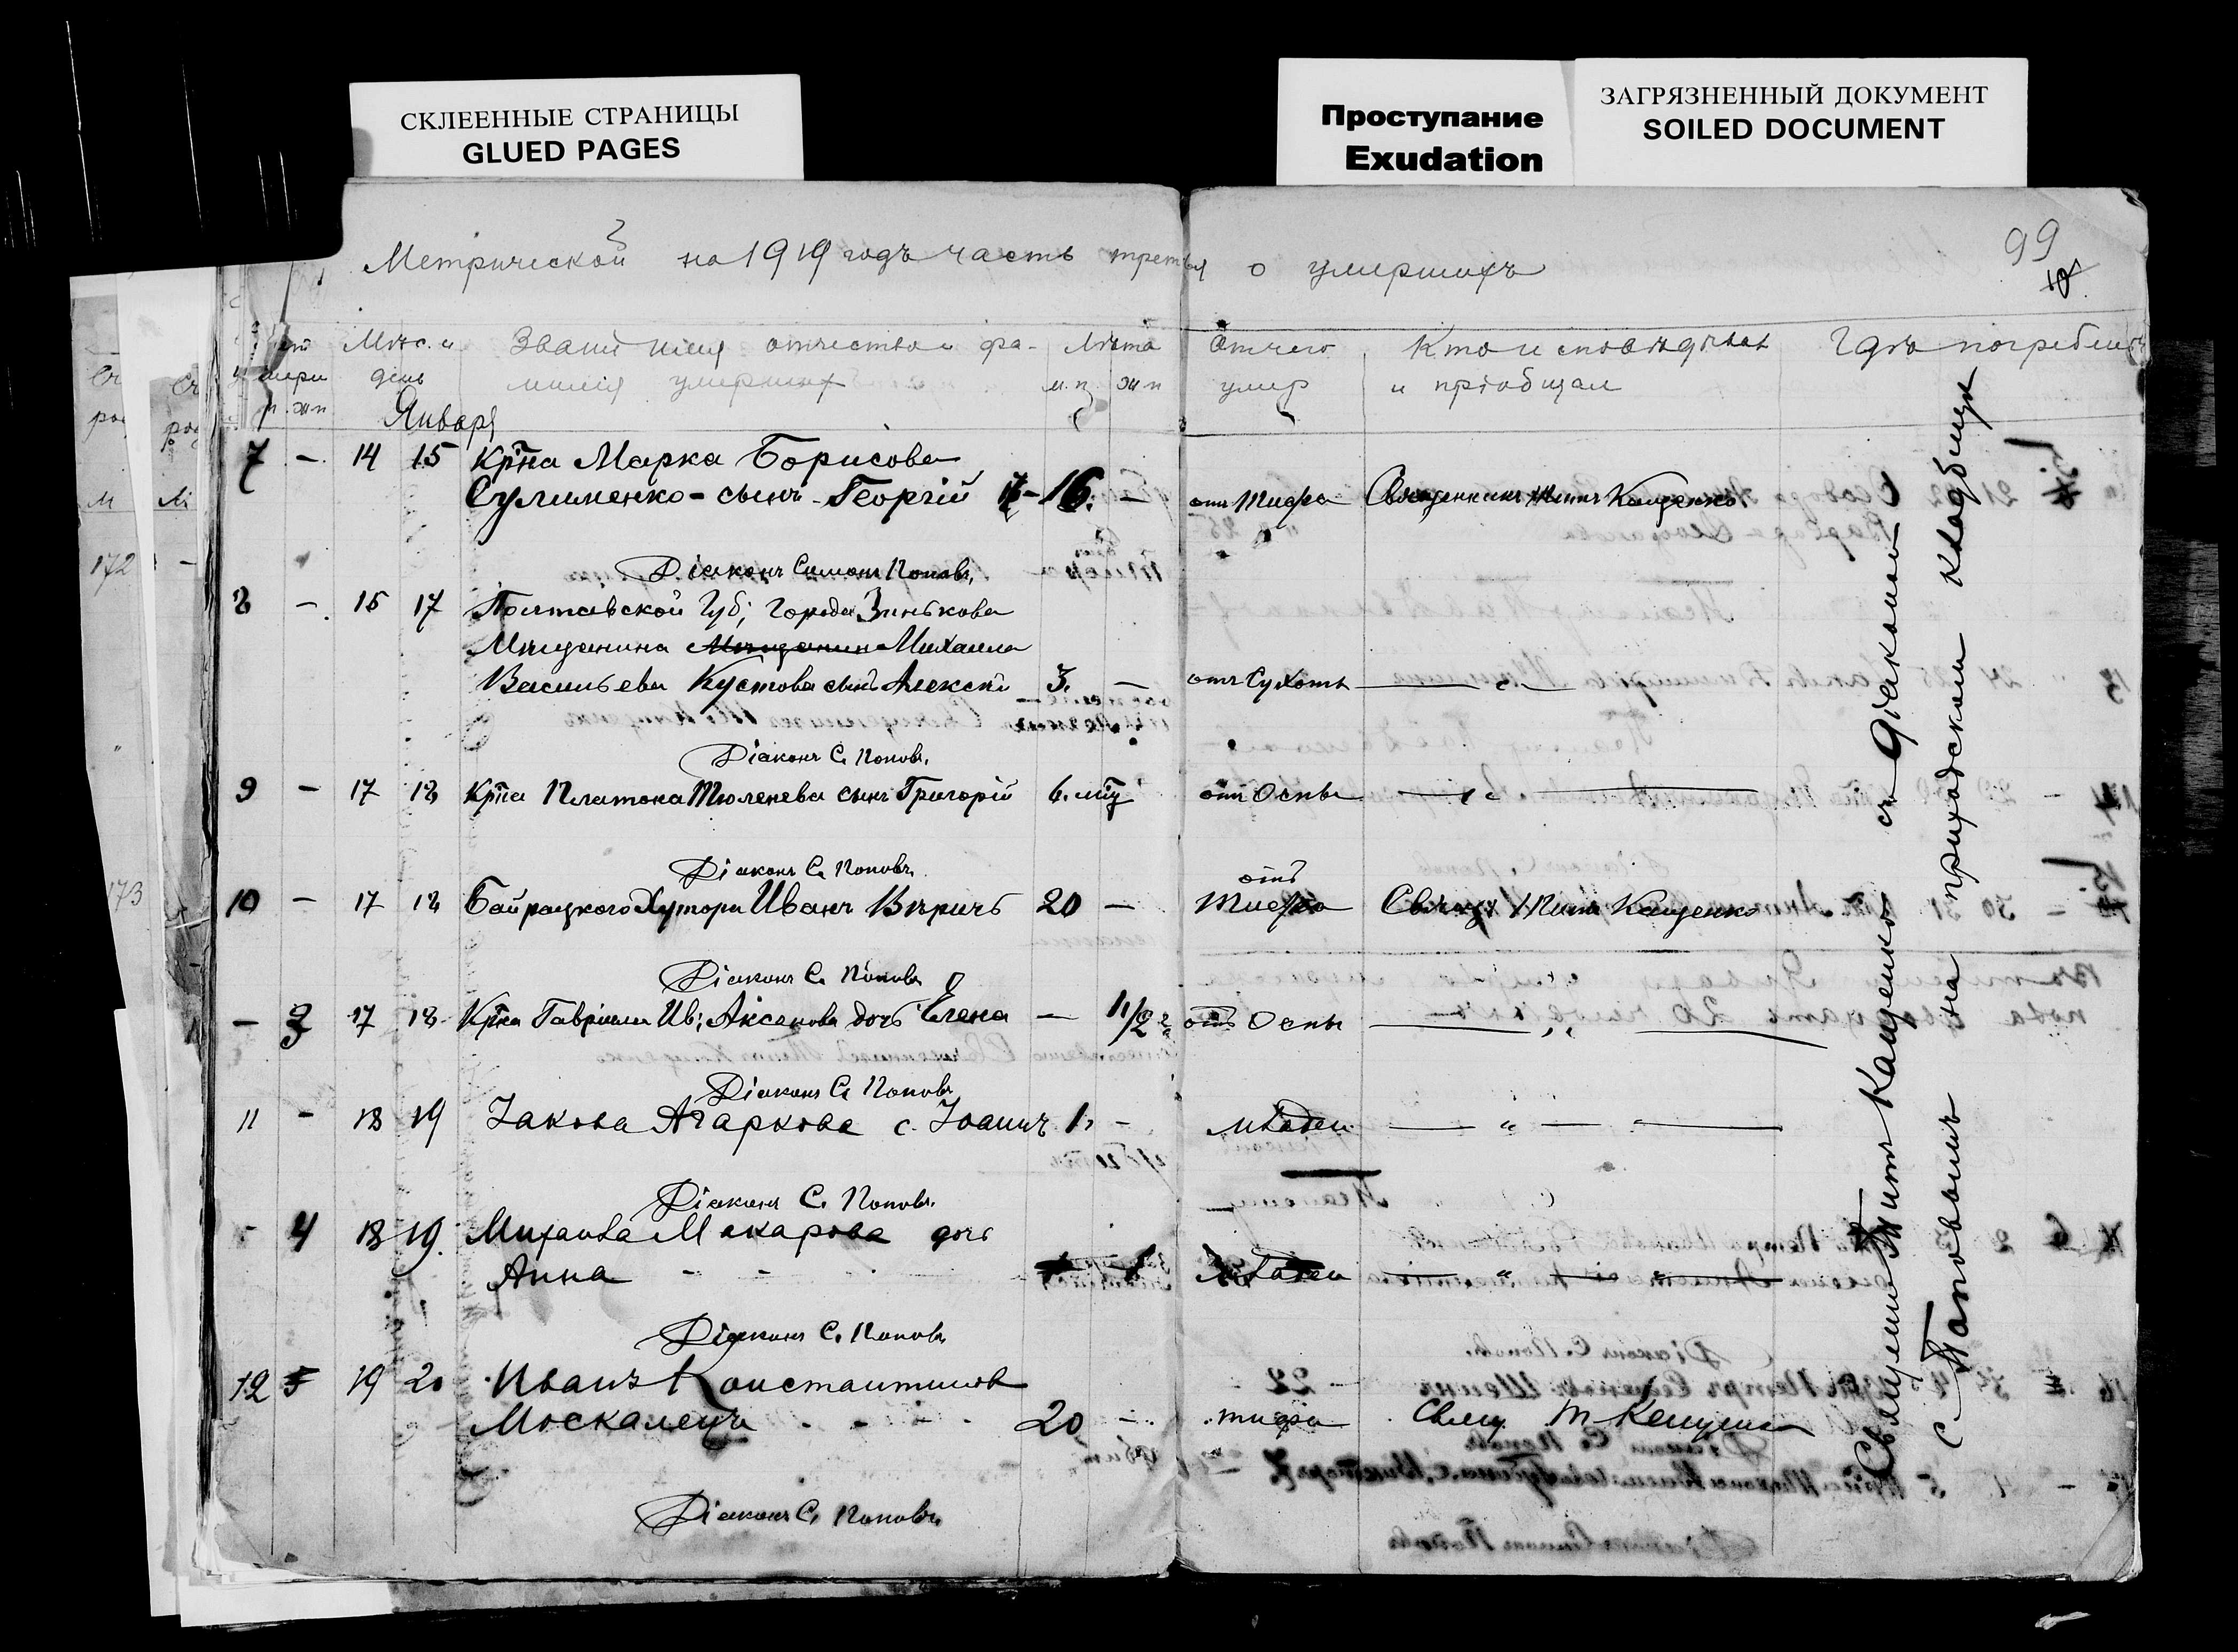 СКЛЕЕННЫЕ СТРАНИЦЫ
GLUED PAGES
Проступание
Exudation
ЗАГРЯЗНЕННЫЙ ДОКУМЕНТ
SOILED DOCUMENT
99
Метрической на 1919 годъ часть третья о умершихъ
Мѣс. и день
Званіе имя отчество и фа-
милія умершихъ
Лѣта
м.п. ж п
Отчего
умер
Кто исповѣдывал
и пріобщал
Гдѣ погребены
Января
7 - 14 15 Крна Марка Борисова
Сулименко - сынъ - Георгій 16. - отъ Тифа Священникъ Титъ Кащенко
Діаконъ Симонъ Поповъ.
8 - 15 17 Полтавской Губ; города Зинькова
Мѣщанина Мѣщанин Михаила
Васильева Кустова сынъ Алексѣй 3. - отъ Сухоты — " —
Діаконъ С. Поповъ.
9 - 17 18 Крна Платона Тюленева сынъ Григорій 6. мц отъ Оспы — " —
Діаконъ С. Поповъ.
10 - 17 18 Байрацкого Хутора Иванъ Вѣричъ 20 - отъ Тифа Священ Титъ Кащенко
Діаконъ С. Поповъ
- 3 17 18 Крна Гавріила Ив; Аксенова дочь Елена - 1 1/2 отъ Оспы — " —
Діаконъ С. Поповъ
11 - 18 19 Іакова Агаркова с. Іоаннъ 1. - младен — " —
Діаконъ С. Поповъ.
- 4 18 19. Михаила Макарова дочь
Анна - - 1 младен — " —
Діаконъ С. Поповъ
12 5 19 20 Иванъ Константинов
Москалецъ - - - 20 - тифа Свящ Т Кащенко
Діаконъ С. Поповъ.
Священ Титъ Кащенко съ Діакономъ
С. Поповымъ на приходскомъ кладбищѣ